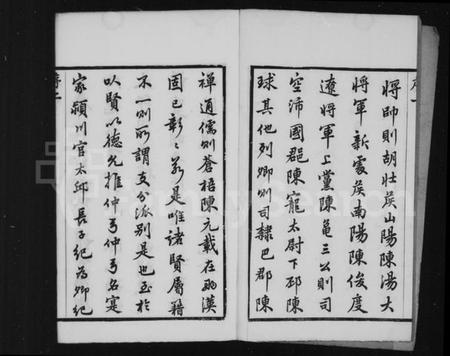 將帥則胡壯矦山陽陳湯大
將軍新處矦南陽陳俊度
遼將軍上黨陳龜三公則司
空沛國郡陳寵太尉下邳陳
球其他列卿則司隸巴郡陳
禪通儒則蒼梧陳元載在兩漢
固已彰彰若是唯諸賢屬籍
不一則所謂支分派別是也至於
以賢以德允推仲弓仲弓名寔
家潁川官太邱長子紀爲卿紀